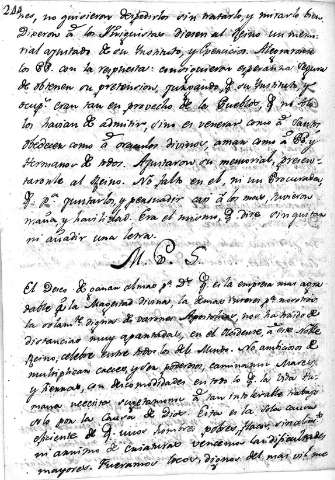 244
nes, no quisieron despedirlos sin tratarlo, y mirarlo bien
dixeron à los que diesen al Reino un memo-
rial ajustado de su Instituto, y exercicios. Alegraronse
los PP. con la respuesta: concivieron esperanza segura
de obtener su pretension, juzgando, q su Instituto, y
ocup. eran tan en provecho de los Pueblos, q no solo
los havian de admitir, sino es venerar como à Santos
obedecer como à oraculos divinos, amar como à PP. y
Hermanos de todos. Ajustaron su memorial, presen-
taronle al Reino. No falto en el, ni un Procurador,
q juntarlos, y persuadir casi à los mas, tuvieron
maña, y havilidad. Era el mismo, q dire sin quitar
ni añadir una letra.
M. P. S.
El Deseo de ganar almas p. Ds. q es la empresa mas agra-
dable à la Magestad Divina, la qual
la dignos de varones Apostolicos, nos ha traido de
distancias muy apartadas, en el Occidente, à este noble
Reino, celebre entre todos los del Mundo. No ambicion de
multiplicar y ser poderosos, caminan Mares,
y tierras, con descomodidades en todo lo q la vida Hu-
mana necesita sugetarnos à tan intolerable trabajo
solo por la causa de Dios. Esta es la sola causa
eficiente de q unos hombres pobres, flacos, sin
ni animo de criaturas vencemos las dificultades
mayores. Fueramos locos, dignos del mas vil me